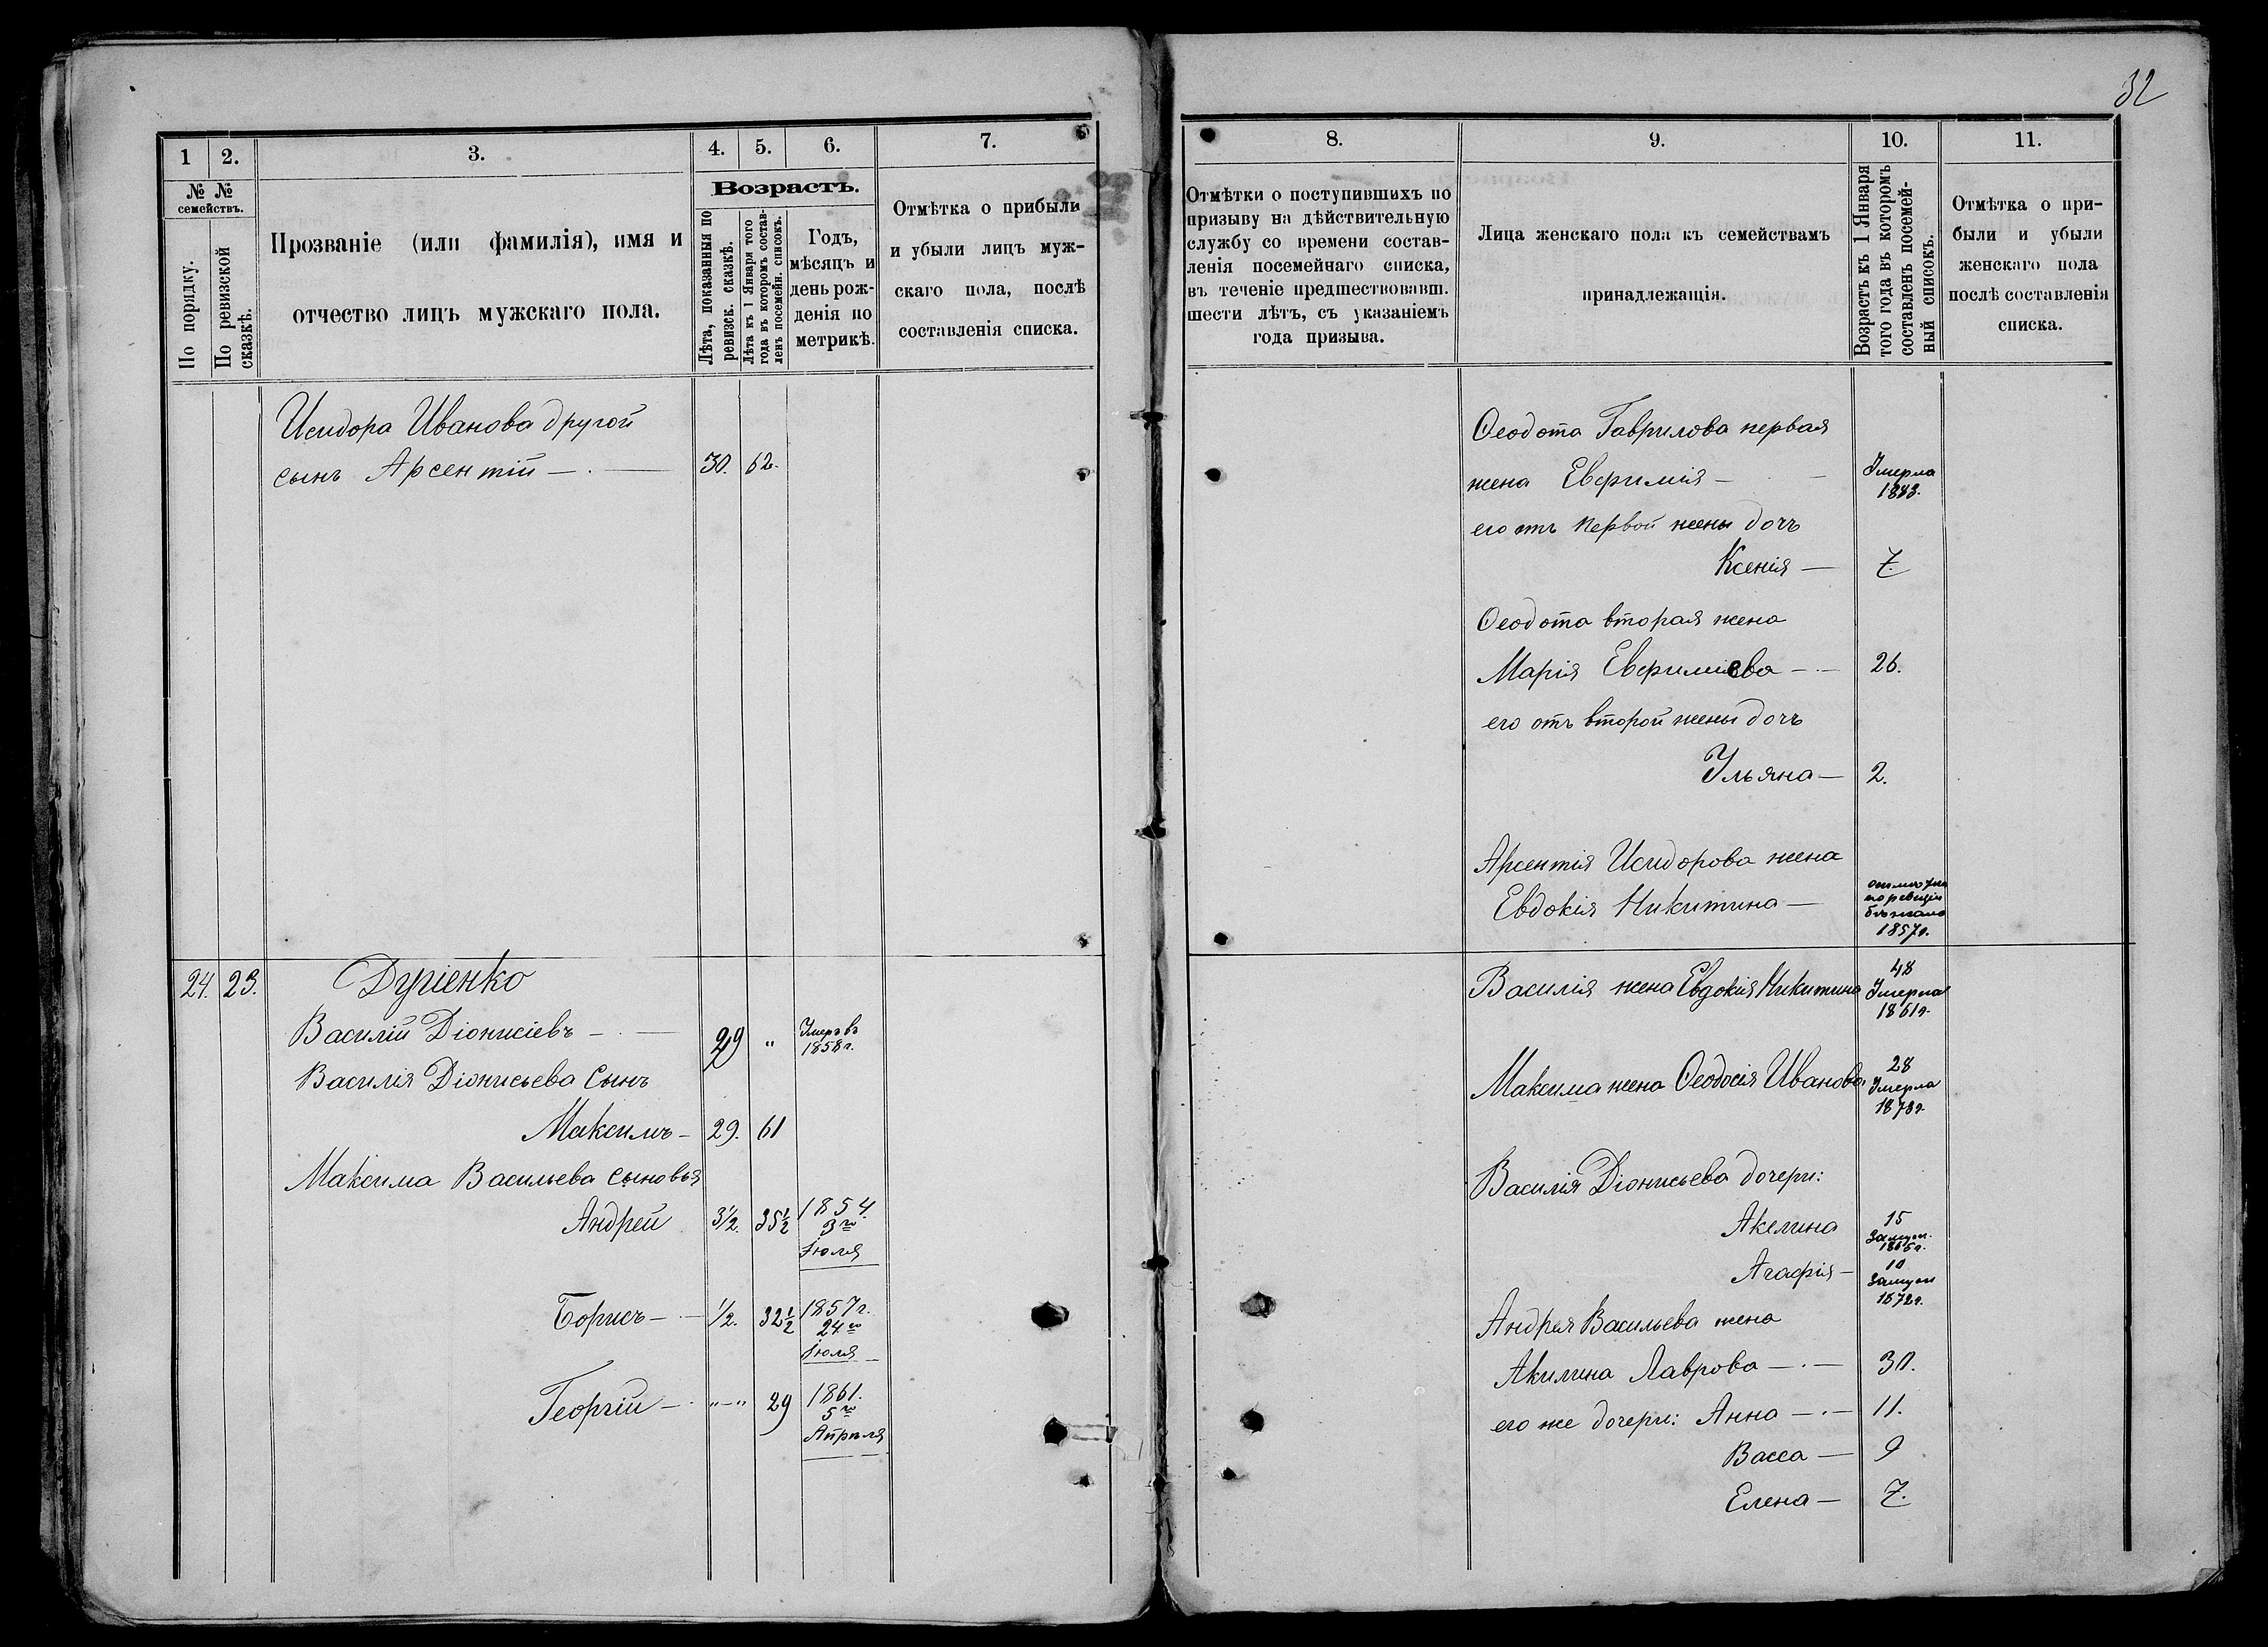 32
1
2.
3.
4.
5.
6.
7.
№ №
семействъ.
По порядку.
По ревизской
сказкѣ.
Прозваніе (или фамилія), имя и
отчество лицъ мужскаго пола.
Возрастъ.
Лѣта, показанныя по
ревизск. сказкѣ.
Лѣта къ 1 Января того
года въ которомъ состав-
ленъ посемейн. списокъ.
Годъ,
мѣсяцъ и
день рож-
денія по
метрикѣ.
Отмѣтка о прибыли
и убыли лицъ муж-
скаго пола, послѣ
составленія списка.
Исидора Иванова другой
сынъ Арсентій — 30. 62.
24. 23. Дугіенко
Василій Діонисіевъ — 49 " Умеръ въ
1858 г.
Василія Діонисьева Сынъ
Максимъ — 29. 61
Максима Васильева сыновья
Андрей 3½. 35½ 1854.
3го
Іюля
Борисъ — ½. 32½ 1857 г.
24го
Іюля
Георгій — "—" 29 1861.
5го
Апрѣля
8.
9.
10.
11.
Отмѣтки о поступившихъ по
призыву на дѣйствительную
службу со времени состав-
ленія посемейнаго списка,
въ теченіе предшествовавш.
шести лѣтъ, съ указаніемъ
года призыва.
Лица женскаго пола къ семействамъ
принадлежащія.
Возрастъ къ 1 Января
того года въ которомъ
составленъ посемей-
ный списокъ.
Отмѣтка о при-
были и убыли
женскаго пола
послѣ составленія
списка.
Ѳеодота Гаврилова первая
жена Евфимія — Умерла
1883.
его отъ первой жены дочь
Ксенія — 7.
Ѳеодота вторая жена
Марія Евфиміева — 26.
его отъ второй жены дочь
Ульяна — 2.
Арсентія Исидорова жена
Евдокія Никитина —
по ревизіи
бѣжала
1857 г.
Василія жена Евдокія Никитина 48
Умерла
1861 г.
Максима жена Ѳеодосія Иванова 28
Умерла
1878 г.
Василія Діонисьева дочери:
Акелина 15
Замуж.
1865 г.
Агафія — 10
Замуж
1872 г.
Андрея Васильева жена
Акилина Лаврова — 30.
его же дочери: Анна — 11.
Васса — 9
Елена — 7.